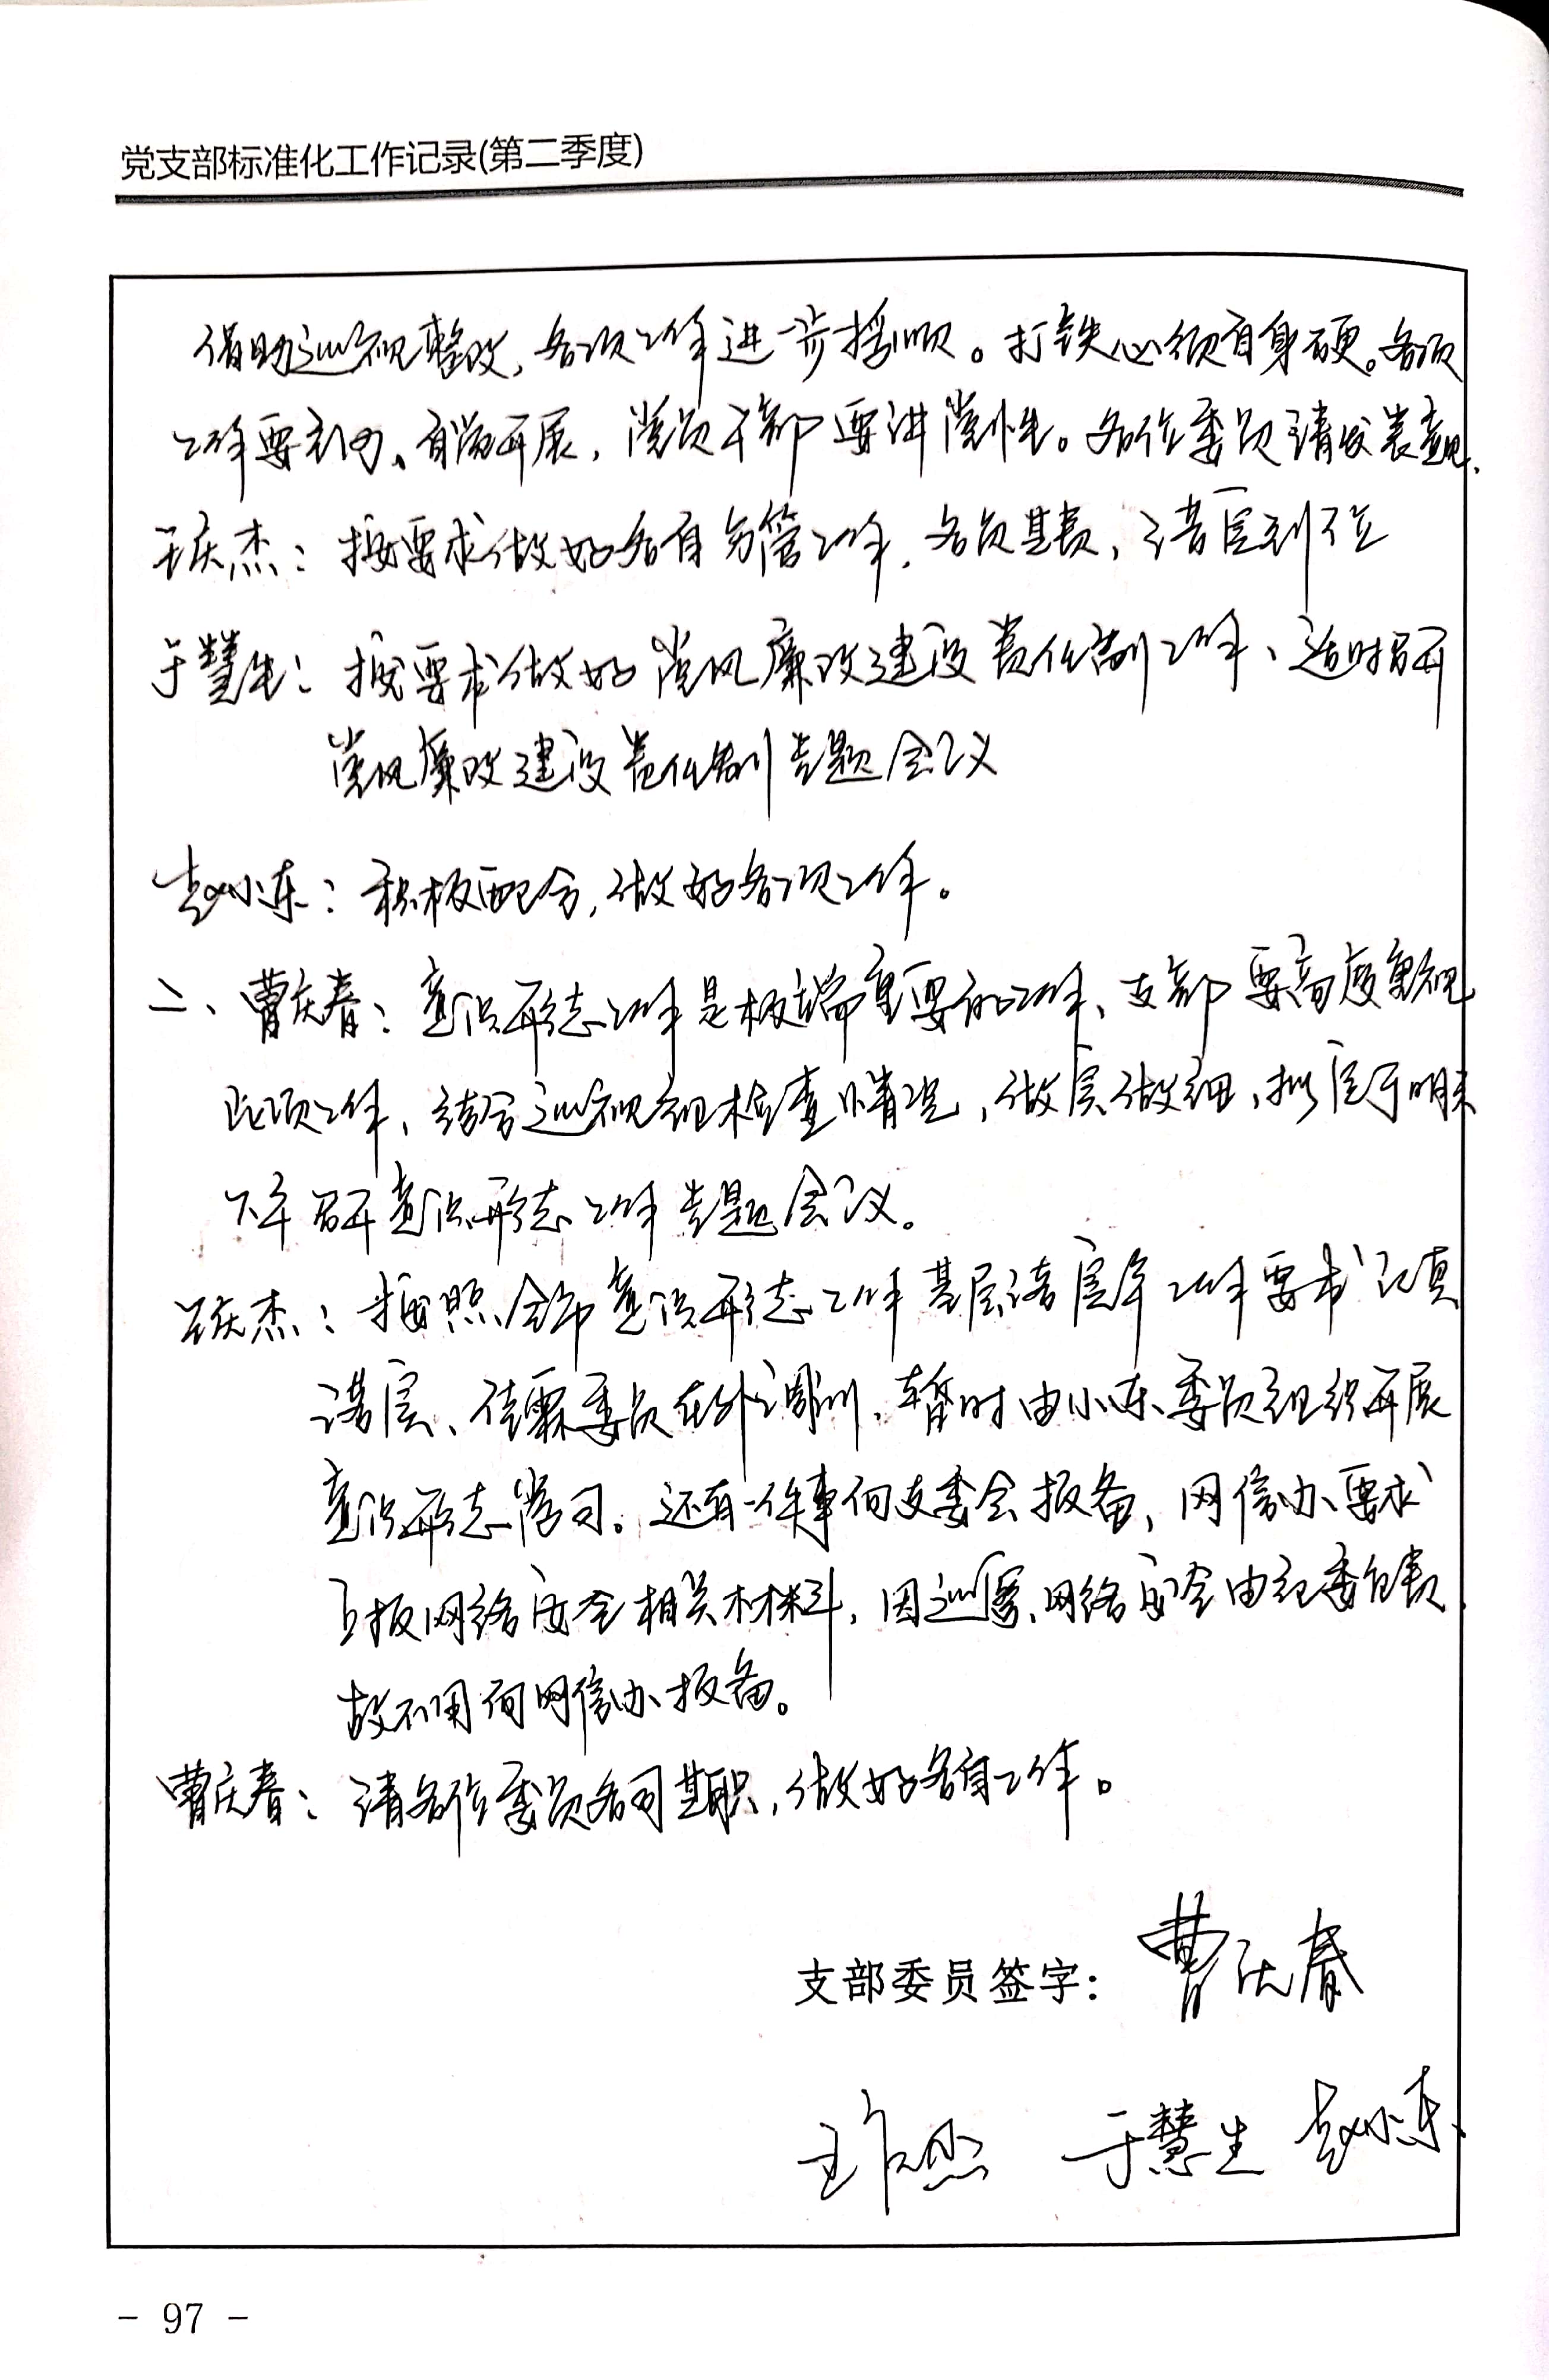 党支部标准化工作记录(第二季度)
借助巡视整改，各项工作进一步捋顺。打铁必须自身硬。各项
工作要主动、有效开展，党员干部要讲党性。各位委员请发表意见。
王庆杰：按要求做好各自分管工作，各负其责，落实到位
于慧生：按要求做好党风廉政建设责任制工作、适时召开
党风廉政建设责任制专题会议
赵小东：积极配合，做好各项工作。
二、曹庆春：意识形态工作是极端重要的工作、支部要高度重视
此项工作，结合巡视组检查情况，做实做细，拟定于明天
下午召开意识形态工作专题会议。
王庆杰：按照全年意识形态工作基层落实年工作要求认真
落实、佳霖委员在外调训，暂时由小东委员组织开展
意识形态学习。还有一件事向支委会报备，网信办要求
上报网络安全相关材料，因巡察、网络安全由纪委负责，
故不用向网信办报备。
曹庆春：请各位委员各司其职，做好各自工作。
支部委员签字：曹庆春
王庆杰 于慧生 赵小东
- 97 -